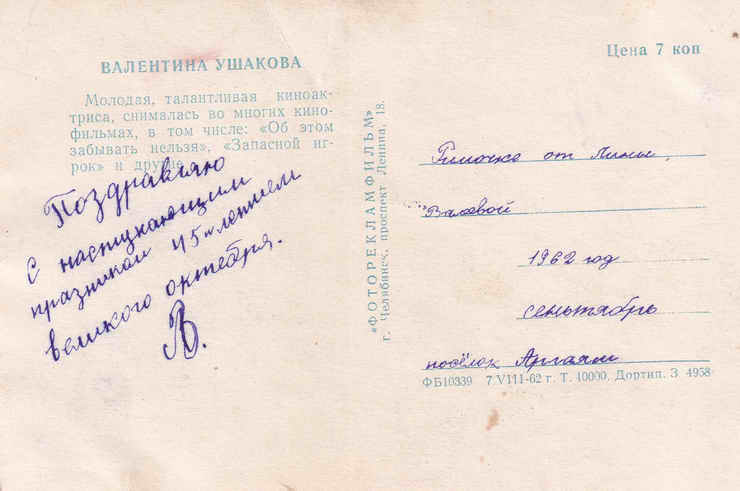 ВАЛЕНТИНА УШАКОВА
Молодая, талантливая киноак-
триса, снималась во многих кино-
фильмах, в том числе: «Об этом
забывать нельзя», «Запасной иг-
рок» и другие
Поздравляю
с наступающим
праздником 45-летием
великого октября.
«ФОТОРЕКЛАМФИЛЬМ»
г. Челябинск, проспект Ленина, 18.
Цена 7 коп
Риточке от Лины
1962 год
сеньтябрь
посёлок Аргаяш
ФБ10339 7/VIII-62 г. Т. 10000. Дортип. З. 4958